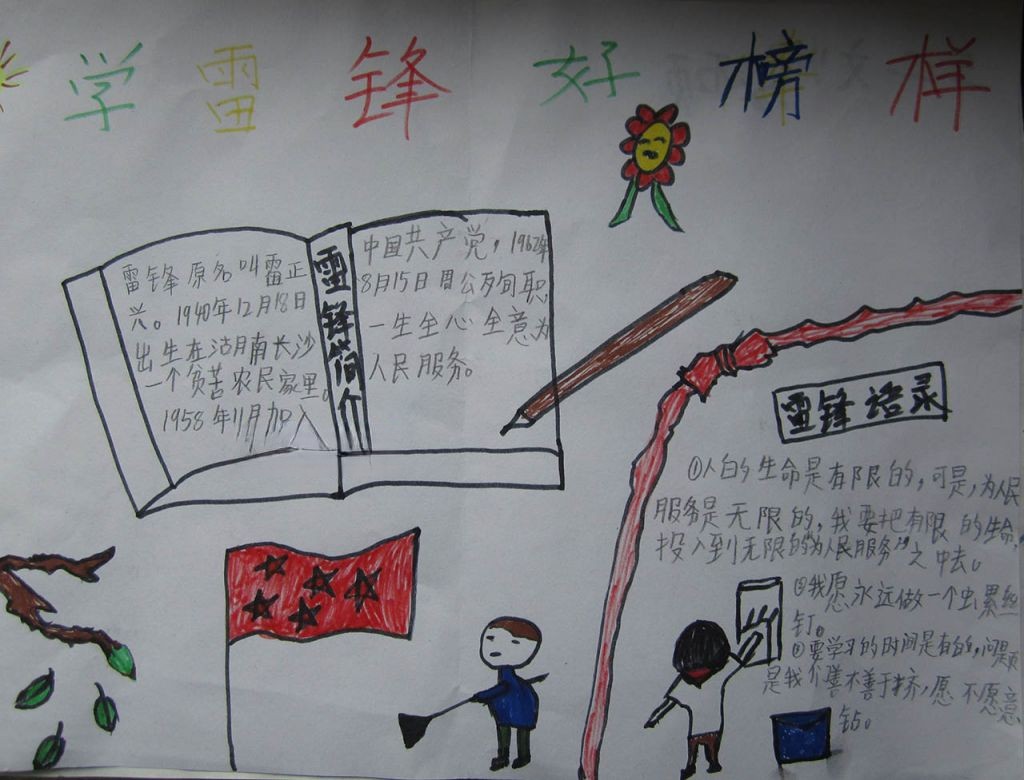 学雷锋好榜样
雷锋原名叫雷正
兴。1940年12月18日
出生在湖南长沙
一个贫苦农民家里。
1958年11月加入
雷锋简介
中国共产党，1962年
8月15日因公殉职
一生全心全意为
人民服务。
雷锋语录
①人的生命是有限的，可是，为人民
服务是无限的，我要把有限的生命，
投入到无限的“为人民服务”之中去。
②我愿永远做一个螺丝
钉。
③要学习的时间是有的，问题
是我们善不善于挤，愿不愿意
钻。